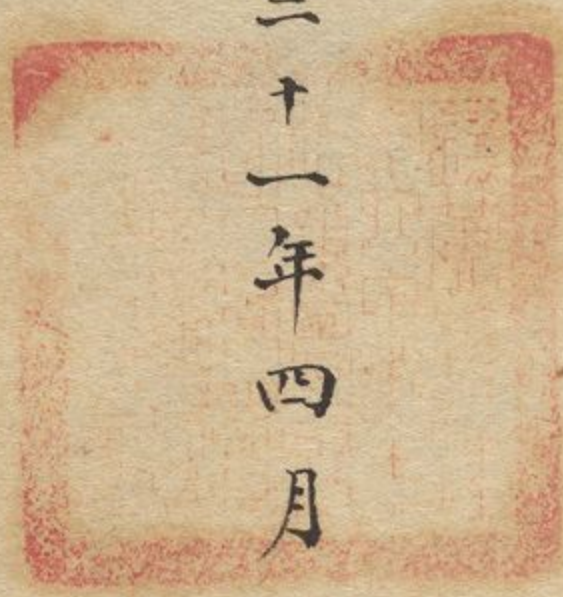 二十一年四月